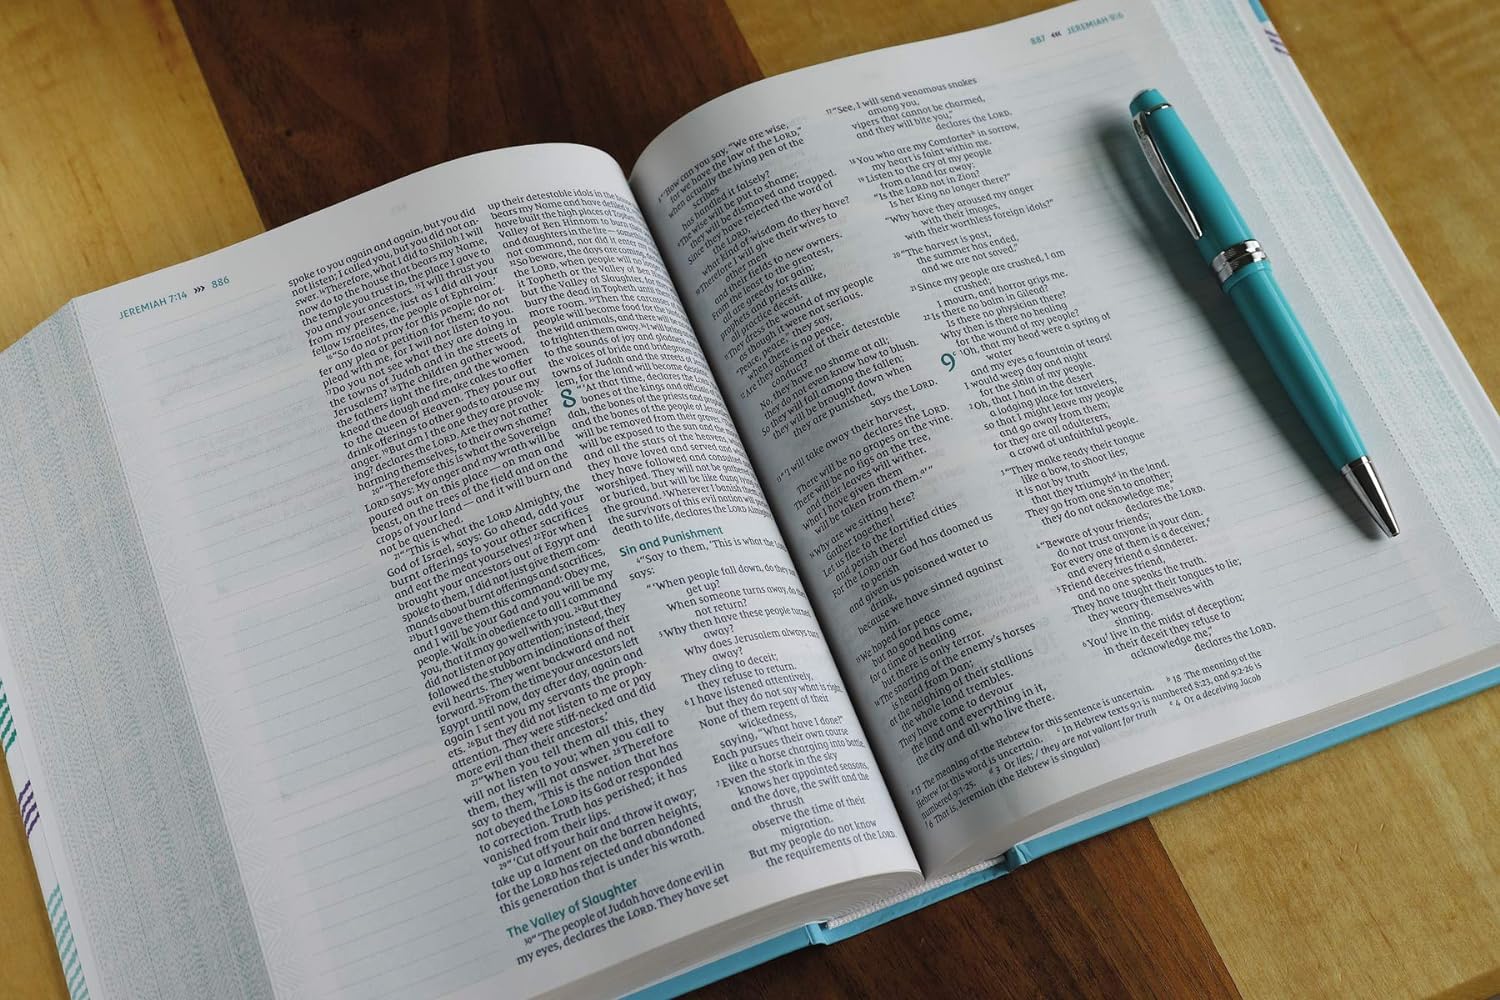 JEREMIAH 7:14 ››› 886
spoke to you again and again, but you did
not listen; I called you, but you did not an-
swer. 14Therefore, what I did to Shiloh I will
now do to the house that bears my Name,
the temple you trust in, the place I gave to
you and your ancestors. 15I will thrust you
from my presence, just as I did all your
fellow Israelites, the people of Ephraim.’
16“So do not pray for this people nor of-
fer any plea or petition for them; do not
plead with me, for I will not listen to you.
17Do you not see what they are doing in
the towns of Judah and in the streets of
Jerusalem? 18The children gather wood,
the fathers light the fire, and the women
knead the dough and make cakes to offer
to the Queen of Heaven. They pour out
drink offerings to other gods to arouse my
anger. 19But am I the one they are provok-
ing? declares the LORD. Are they not rather
harming themselves, to their own shame?
20“‘Therefore this is what the Sovereign
LORD says: My anger and my wrath will be
poured out on this place—on man and
beast, on the trees of the field and on the
crops of your land—and it will burn and
not be quenched.
21“‘This is what the LORD Almighty, the
God of Israel, says: Go ahead, add your
burnt offerings to your other sacrifices
and eat the meat yourselves! 22For when I
brought your ancestors out of Egypt and
spoke to them, I did not just give them com-
mands about burnt offerings and sacrifices,
23but I gave them this command: Obey me,
and I will be your God and you will be my
people. Walk in obedience to all I command
you, that it may go well with you. 24But they
did not listen or pay attention; instead, they
followed the stubborn inclinations of their
evil hearts. They went backward and not
forward. 25From the time your ancestors left
Egypt until now, day after day, again and
again I sent you my servants the proph-
ets. 26But they did not listen to me or pay
attention. They were stiff-necked and did
more evil than their ancestors.’
27“When you tell them all this, they
will not listen to you; when you call to
them, they will not answer. 28Therefore
say to them, ‘This is the nation that has
not obeyed the LORD its God or responded
to correction. Truth has perished; it has
vanished from their lips.
29“‘Cut off your hair and throw it away;
take up a lament on the barren heights,
for the LORD has rejected and abandoned
this generation that is under his wrath.
The Valley of Slaughter
30“‘The people of Judah have done evil in
my eyes, declares the LORD. They have set
up their detestable idols in the house
bears my Name and have defiled
have built the high places of Topheth
Valley of Ben Hinnom to burn their
and daughters in the fire—something
not command, nor did it enter my
32So beware, the days are coming,
the LORD, when people will no longer
it Topheth or the Valley of Ben
but the Valley of Slaughter, for they
bury the dead in Topheth until
room. 33Then the carcasses
people will become food for the
the wild animals, and there will
to frighten them away. 34I will bring
to the sounds of joy and gladness
the voices of bride and bridegroom
towns of Judah and the streets of
for the land will become desolate
8 “‘At that time, declares the LORD
bones of the kings and officials
dah, the bones of the priests and
will be removed from their graves
will be exposed to the sun and the
and all the stars of the heavens,
they have loved and served and
they have followed and consulted
worshiped. They will not be gathered
or buried, but will be like dung lying
the ground. 3Wherever I banish them
the survivors of this evil nation will
death to life, declares the LORD Almighty
Sin and Punishment
4“Say to them, ‘This is what the LORD
says:
“‘When people fall down, do they
get up?
When someone turns away, do they
not return?
5Why then have these people turned
away?
Why does Jerusalem always turn
away?
They cling to deceit;
they refuse to return.
6I have listened attentively,
but they do not say what is right.
None of them repent of their
wickedness,
saying, “What have I done?”
Each pursues their own course
like a horse charging into battle.
7Even the stork in the sky
knows her appointed seasons,
and the dove, the swift and the
thrush
observe the time of their
migration.
But my people do not know
the requirements of the LORD.
887 ‹‹‹ JEREMIAH 9:6
8“‘How can you say, “We are wise,
for we have the law of the LORD,”
when actually the lying pen of the
scribes
has handled it falsely?
9The wise will be put to shame;
they will be dismayed and trapped.
Since they have rejected the word of
the LORD,
what kind of wisdom do they have?
10Therefore I will give their wives to
other men
and their fields to new owners.
From the least to the greatest,
all are greedy for gain;
prophets and priests alike,
all practice deceit.
11They dress the wound of my people
as though it were not serious.
“Peace, peace,” they say,
when there is no peace.
12Are they ashamed of their detestable
conduct?
No, they have no shame at all;
they do not even know how to blush.
So they will fall among the fallen;
they will be brought down when
they are punished,
says the LORD.
13“‘I will take away their harvest,
declares the LORD.
There will be no grapes on the vine.
There will be no figs on the tree,
and their leaves will wither.
What I have given them
will be taken from them.a’”
14Why are we sitting here?
Gather together!
Let us flee to the fortified cities
and perish there!
For the LORD our God has doomed us
to perish
and given us poisoned water to
drink,
because we have sinned against
him.
15We hoped for peace
but no good has come,
for a time of healing
but there is only terror.
16The snorting of the enemy’s horses
is heard from Dan;
at the neighing of their stallions
the whole land trembles.
They have come to devour
the land and everything in it,
the city and all who live there.
17“See, I will send venomous snakes
among you,
vipers that cannot be charmed,
and they will bite you,”
declares the LORD.
18You who are my Comforterb in sorrow,
my heart is faint within me.
19Listen to the cry of my people
from a land far away:
“Is the LORD not in Zion?
Is her King no longer there?”
“Why have they aroused my anger
with their images,
with their worthless foreign idols?”
20“The harvest is past,
the summer has ended,
and we are not saved.”
21Since my people are crushed, I am
crushed;
I mourn, and horror grips me.
22Is there no balm in Gilead?
Is there no physician there?
Why then is there no healing
for the wound of my people?
9 cOh, that my head were a spring of
water
and my eyes a fountain of tears!
I would weep day and night
for the slain of my people.
2Oh, that I had in the desert
a lodging place for travelers,
so that I might leave my people
and go away from them;
for they are all adulterers,
a crowd of unfaithful people.
3“They make ready their tongue
like a bow, to shoot lies;
it is not by truth
that they triumphd in the land.
They go from one sin to another;
they do not acknowledge me,”
declares the LORD.
4“Beware of your friends;
do not trust anyone in your clan.
For every one of them is a deceiver,e
and every friend a slanderer.
5Friend deceives friend,
and no one speaks the truth.
They have taught their tongues to lie;
they weary themselves with
sinning.
6Youf live in the midst of deception;
in their deceit they refuse to
acknowledge me,”
declares the LORD.
a 13 The meaning of the Hebrew for this sentence is uncertain. b 18 The meaning of the
Hebrew for this word is uncertain. c In Hebrew texts 9:1 is numbered 8:23, and 9:2-26 is
numbered 9:1-25. d 3 Or lies; / they are not valiant for truth e 4 Or a deceiving Jacob
f 6 That is, Jeremiah (the Hebrew is singular)